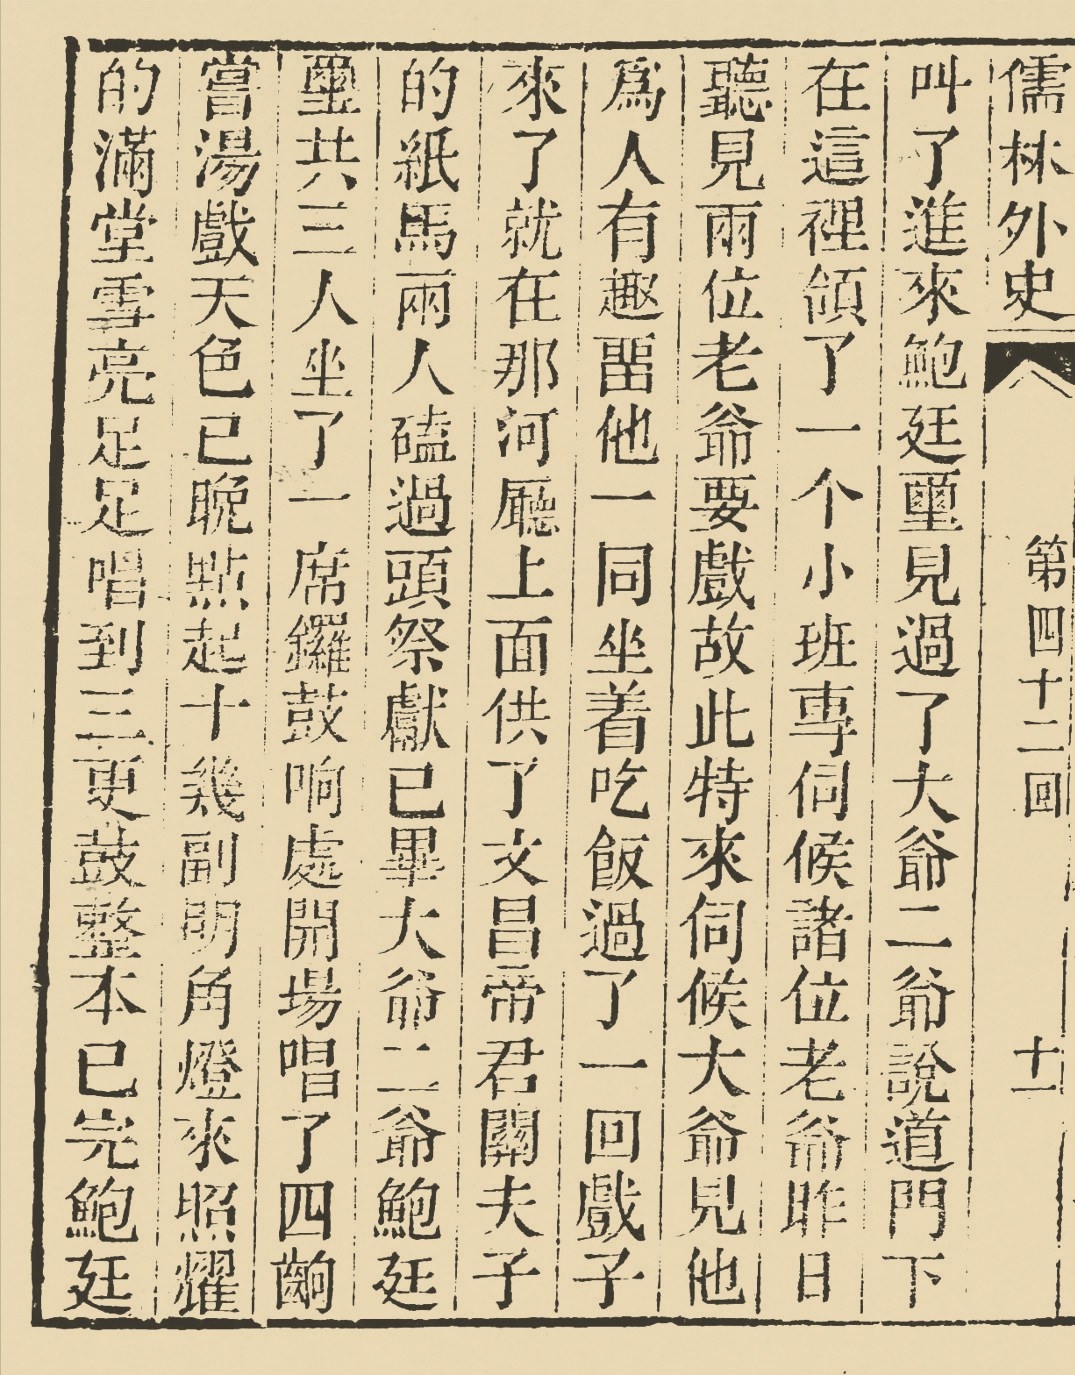 儒林外史
第四十二回
十一
叫了進來鮑廷璽見過了大爺二爺說道門下
在這裡領了一个小班專伺候諸位老爺昨日
聽見兩位老爺要戲故此特來伺候大爺見他
爲人有趣畱他一同坐着吃飯過了一回戲子
來了就在那河廳上面供了文昌帝君關夫子
的紙馬兩人磕過頭祭獻已畢大爺二爺鮑廷
璽共三人坐了一席鑼鼓响處開場唱了四齣
嘗湯戲天色已晚點起十幾副明角燈來照耀
的滿堂雪亮足足唱到三更鼓整本已完鮑廷